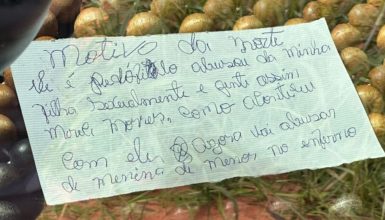 Motivo da morte
ele é pedófilo abusou da minha
filha sexualmente e gente assim
merece morrer, como aconteceu
com ele. Agora vai abusar
de menina de menor no inferno